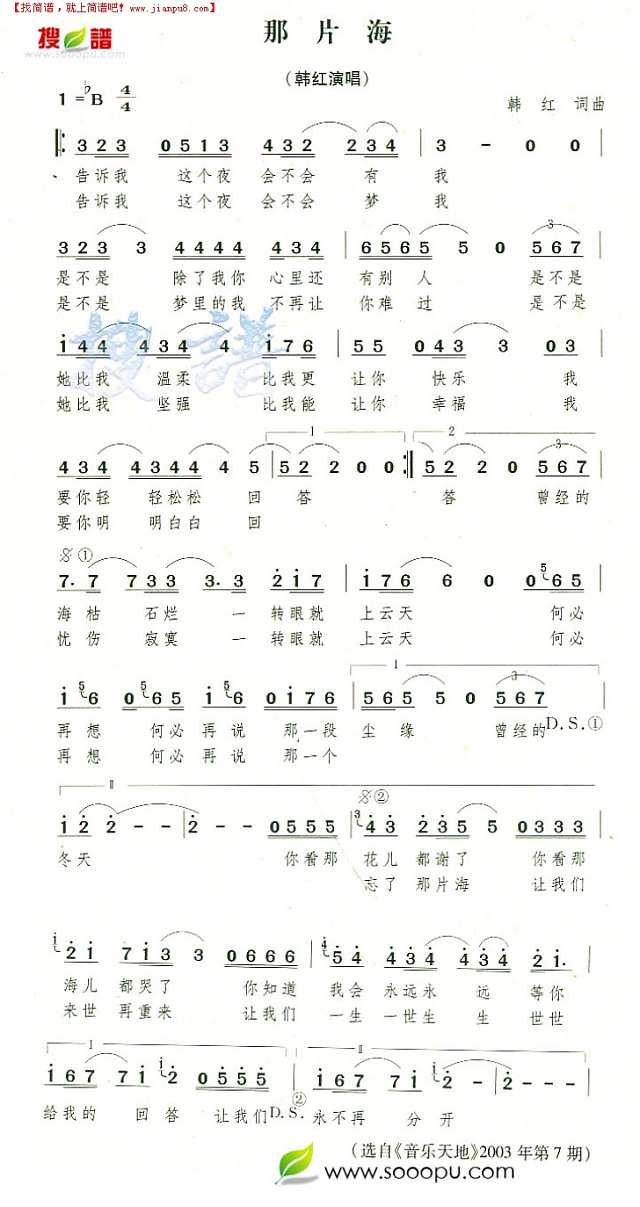 【找简谱，就上简谱吧! www.jianpu8.com】
搜谱
www.sooopu.com
那片海
（韩红演唱）
1=♭B 4/4
韩 红 词曲
3 2 3 0 5 1 3 4 3 2 2 3 4 3 - 0 0
告诉我 这个夜 会不会 有 我
告诉我 这个夜 会不会 梦 我
3 2 3 3 4 4 4 4 4 3 4 6 5 6 5 5 0 5 6 7
是不是 除了我你 心里还 有别人 是不是
是不是 梦里的我 不再让 你难过 是不是
搜谱
i 4 4 4 3 4 4 i 7 6 5 5 0 4 3 3 0 3
她比我 温柔 比我更 让你 快乐 我
她比我 坚强 比我能 让你 幸福 我
I 2
4 3 4 4 3 4 4 4 5 5 2 2 0 0 5 2 2 0 5 6 7
要你轻 轻松松 回 答 答 曾经的
要你明 明白白 回
①
7. 7 7 3 3 3. 3 2 i 7 i 7 6 6 0 0 5 6 5
海枯 石烂 一 转眼就 上云天 何必
忧伤 寂寞 一 转眼就 上云天 何必
I
i 5 6 0 5 6 5 5 5 0 i 7 6 5 6 5 5 0 5 6 7
再想 何必 再说 那一段 尘缘 曾经的 D.S.①
再想 何必 再说 那一个
II
②
i 2 2 - - 2 - - 0 5 5 5 3 4 3 2 3 5 5 0 3 3 3
冬天 你看那 花儿 都谢了 你看那
忘了 那片海 让我们
i 2 i 7 i 3 3 0 6 6 6 4 5 4 4 4 5 5 2 i.
海儿 都哭了 你知道 我会 永远永 远 等你
来世 再重来 让我们 一生 一世生 生 世世
I II
i 6 7 7 i i 2 0 5 5 5 i 6 7 7 i i 2 - 2 - - -
给我的 回答 让我们 D.S.② 永不再 分开
（选自《音乐天地》2003年第7期）
www.sooopu.com